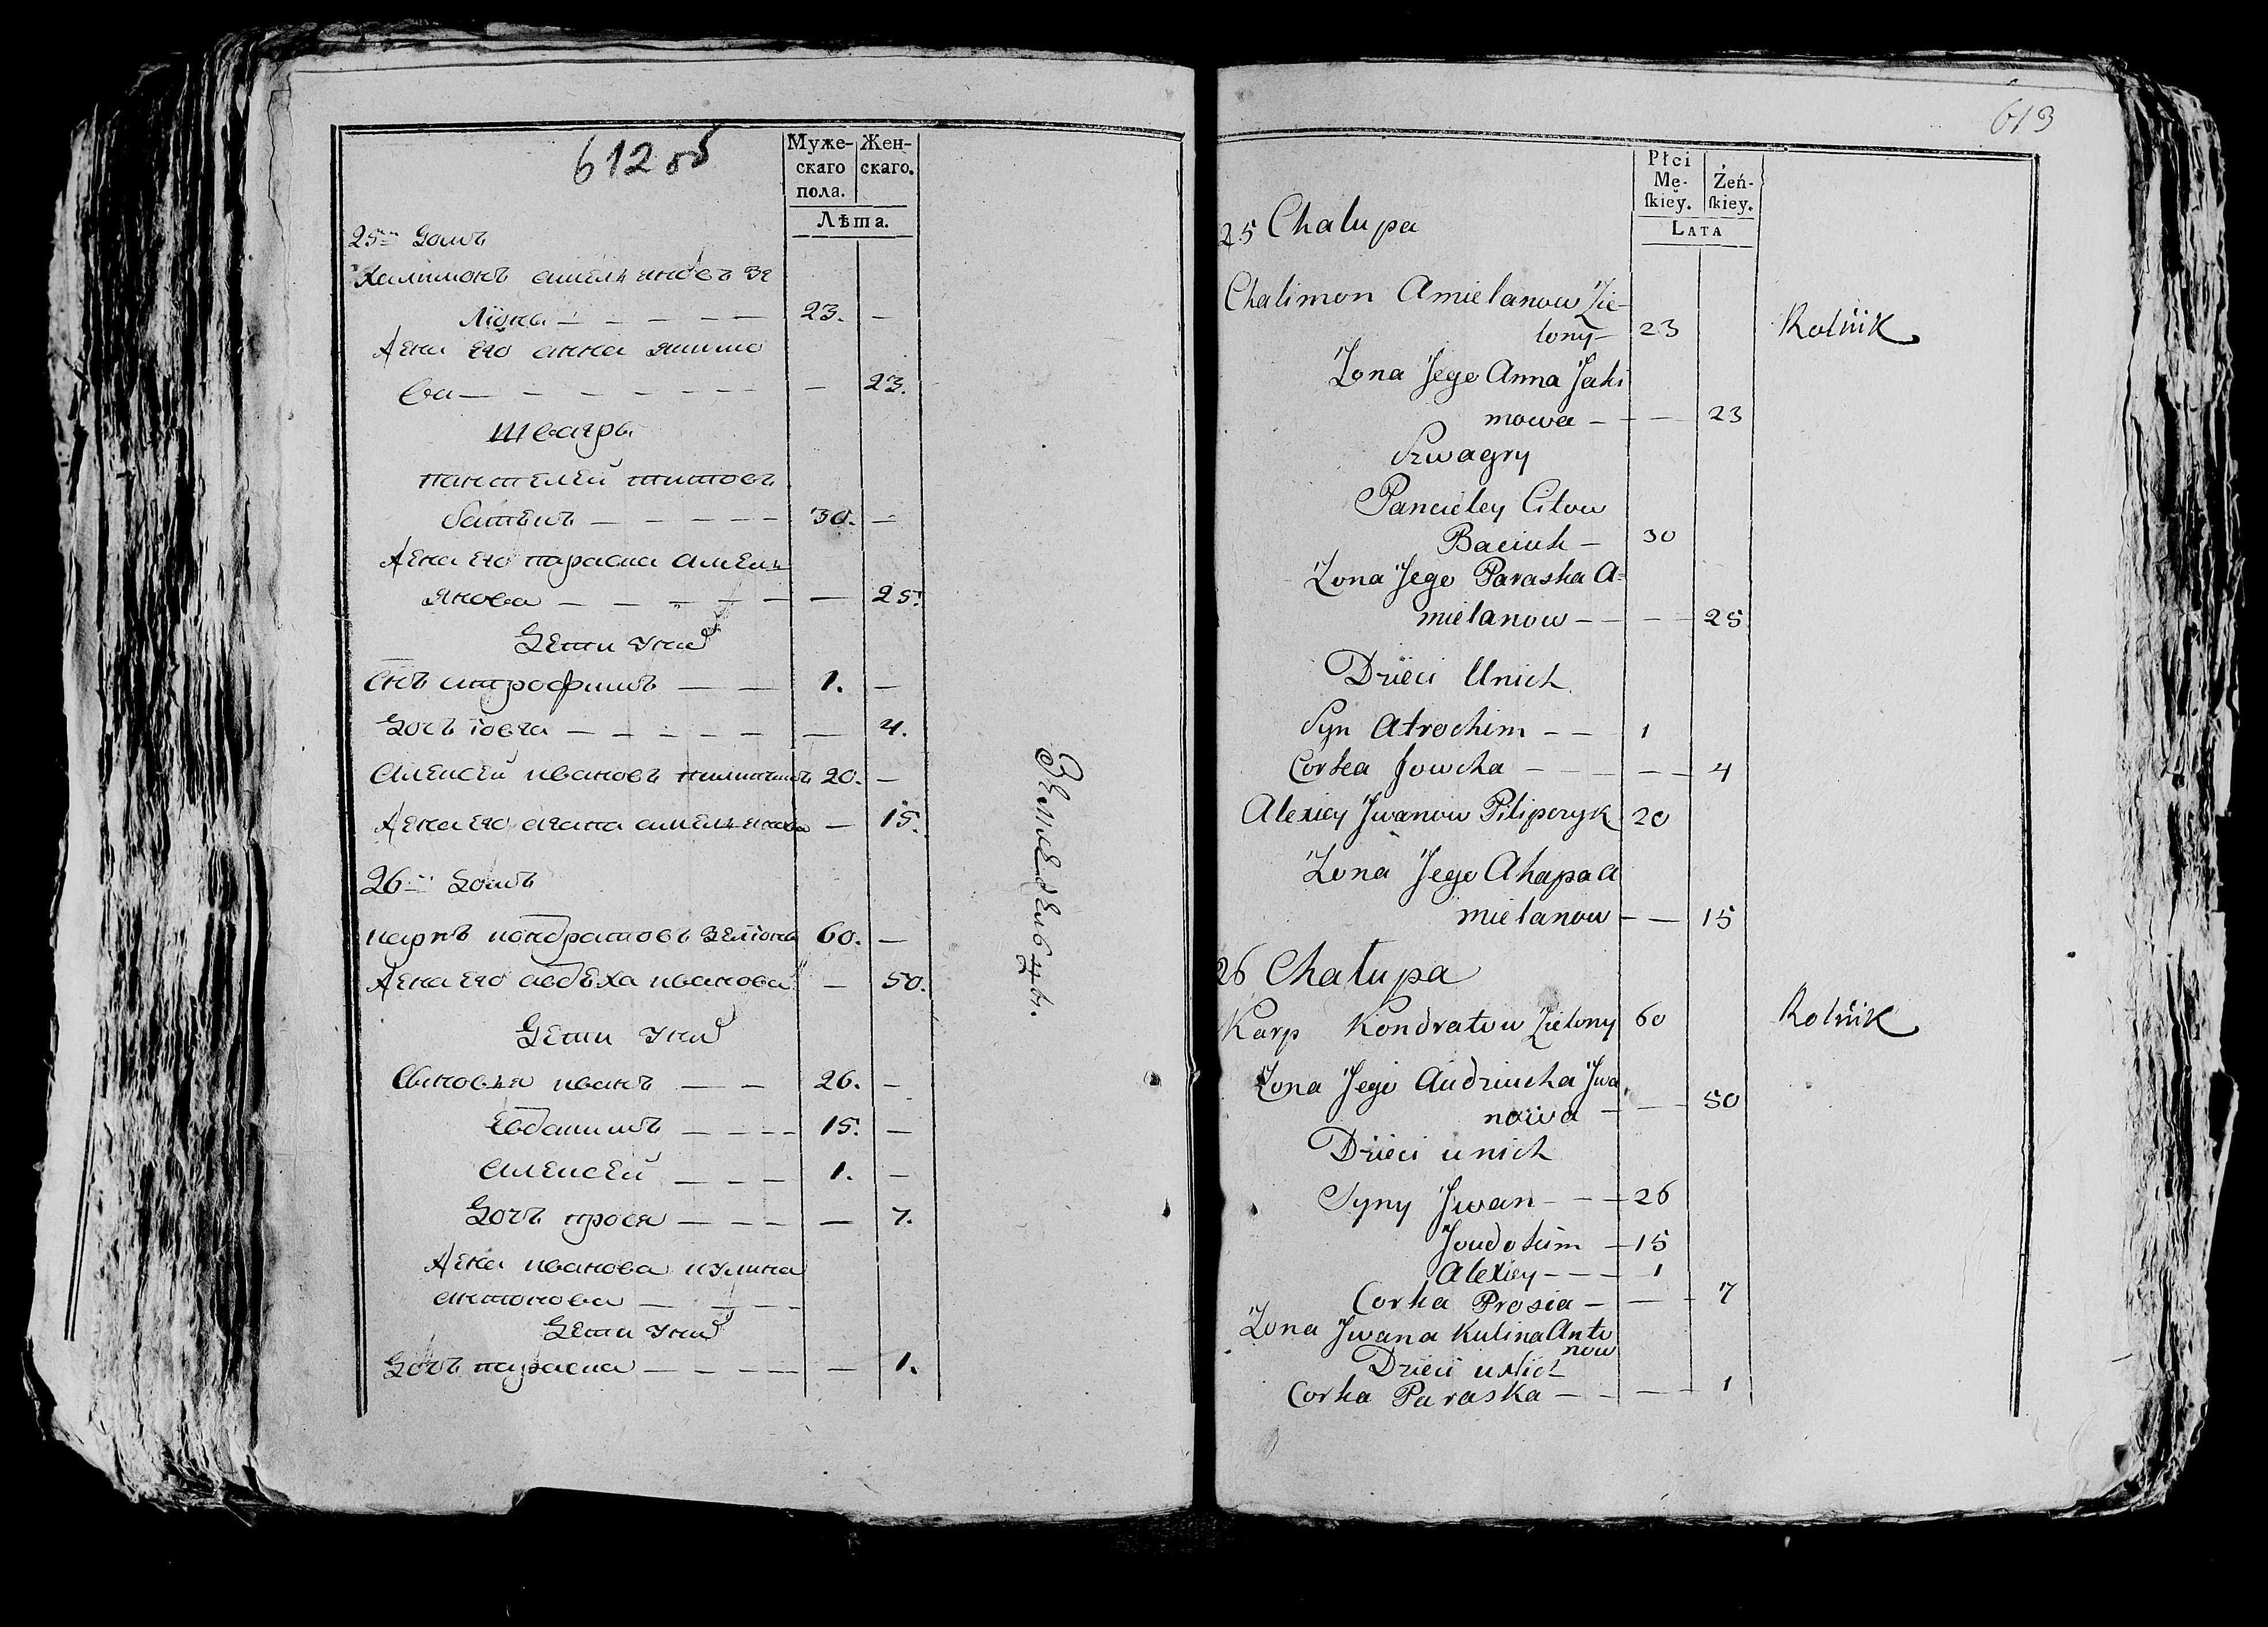 612 об
Муже- Жен-
скаго скаго.
пола.
Лѣта.
25й домъ
Халимонъ амельяновъ зе
ліоны — — — — — 23. —
Жена его анна якимо
ва — — — — — — — 23.
Швагры
пантелей титовъ
батюкъ — — — — — 30. —
Жена его параска амель
янова — — — — — — 25.
Дети у них
Снъ атрофимъ — — 1. —
Дочъ іовга — — — — — — 4.
Алексей ивановъ пилипчикъ 20. —
Жена его агапа амельянова — 15.
26й домъ
карпъ кондратовъ зеліоны 60. —
Жена его авдѣха иванова — 50.
Дети у них
Сыновья иванъ — — 26. —
Евдакимъ — — — — 15. —
алексей — — — 1. —
Дочъ прося — — — — 7.
Жена иванова кулина
антонова — — — —
Дети у них
Дочъ параска — — — — — 1.
Земледельцы.
613
Płci
Mę- Żeń-
ſkiey. ſkiey.
LATA
25 Chalupa
Chalimon Amielanow Zie-
lony — 23 Rolnik
Zona Jego Anna Jaki
mowa — — 23
Szwagry
Pancieley Citow
Baciuk — 30
Zona Jego Paraska A-
mielanow — — — 25
Dzieci Unich
Syn Atrochim — — 1
Corka Jowcha — — — — 4
Alexiey Jwanow Pilipczyk 20
Zona Jego Ahapa A
mielanow — — 15
26 Chałupa
Karp Kondratow Zielony 60 Rolnik
Zona Jego Audziucha Jwa
nowa — — 50
Dzieci u nich
Syny Jwan — — — 26
Joudokim — 15
Alexiey — — — 1
Corka Prosia — — — 7
Zona Jwana Kulina Anto
now
Dzieci u Nich
Corka Paraska — — — — 1